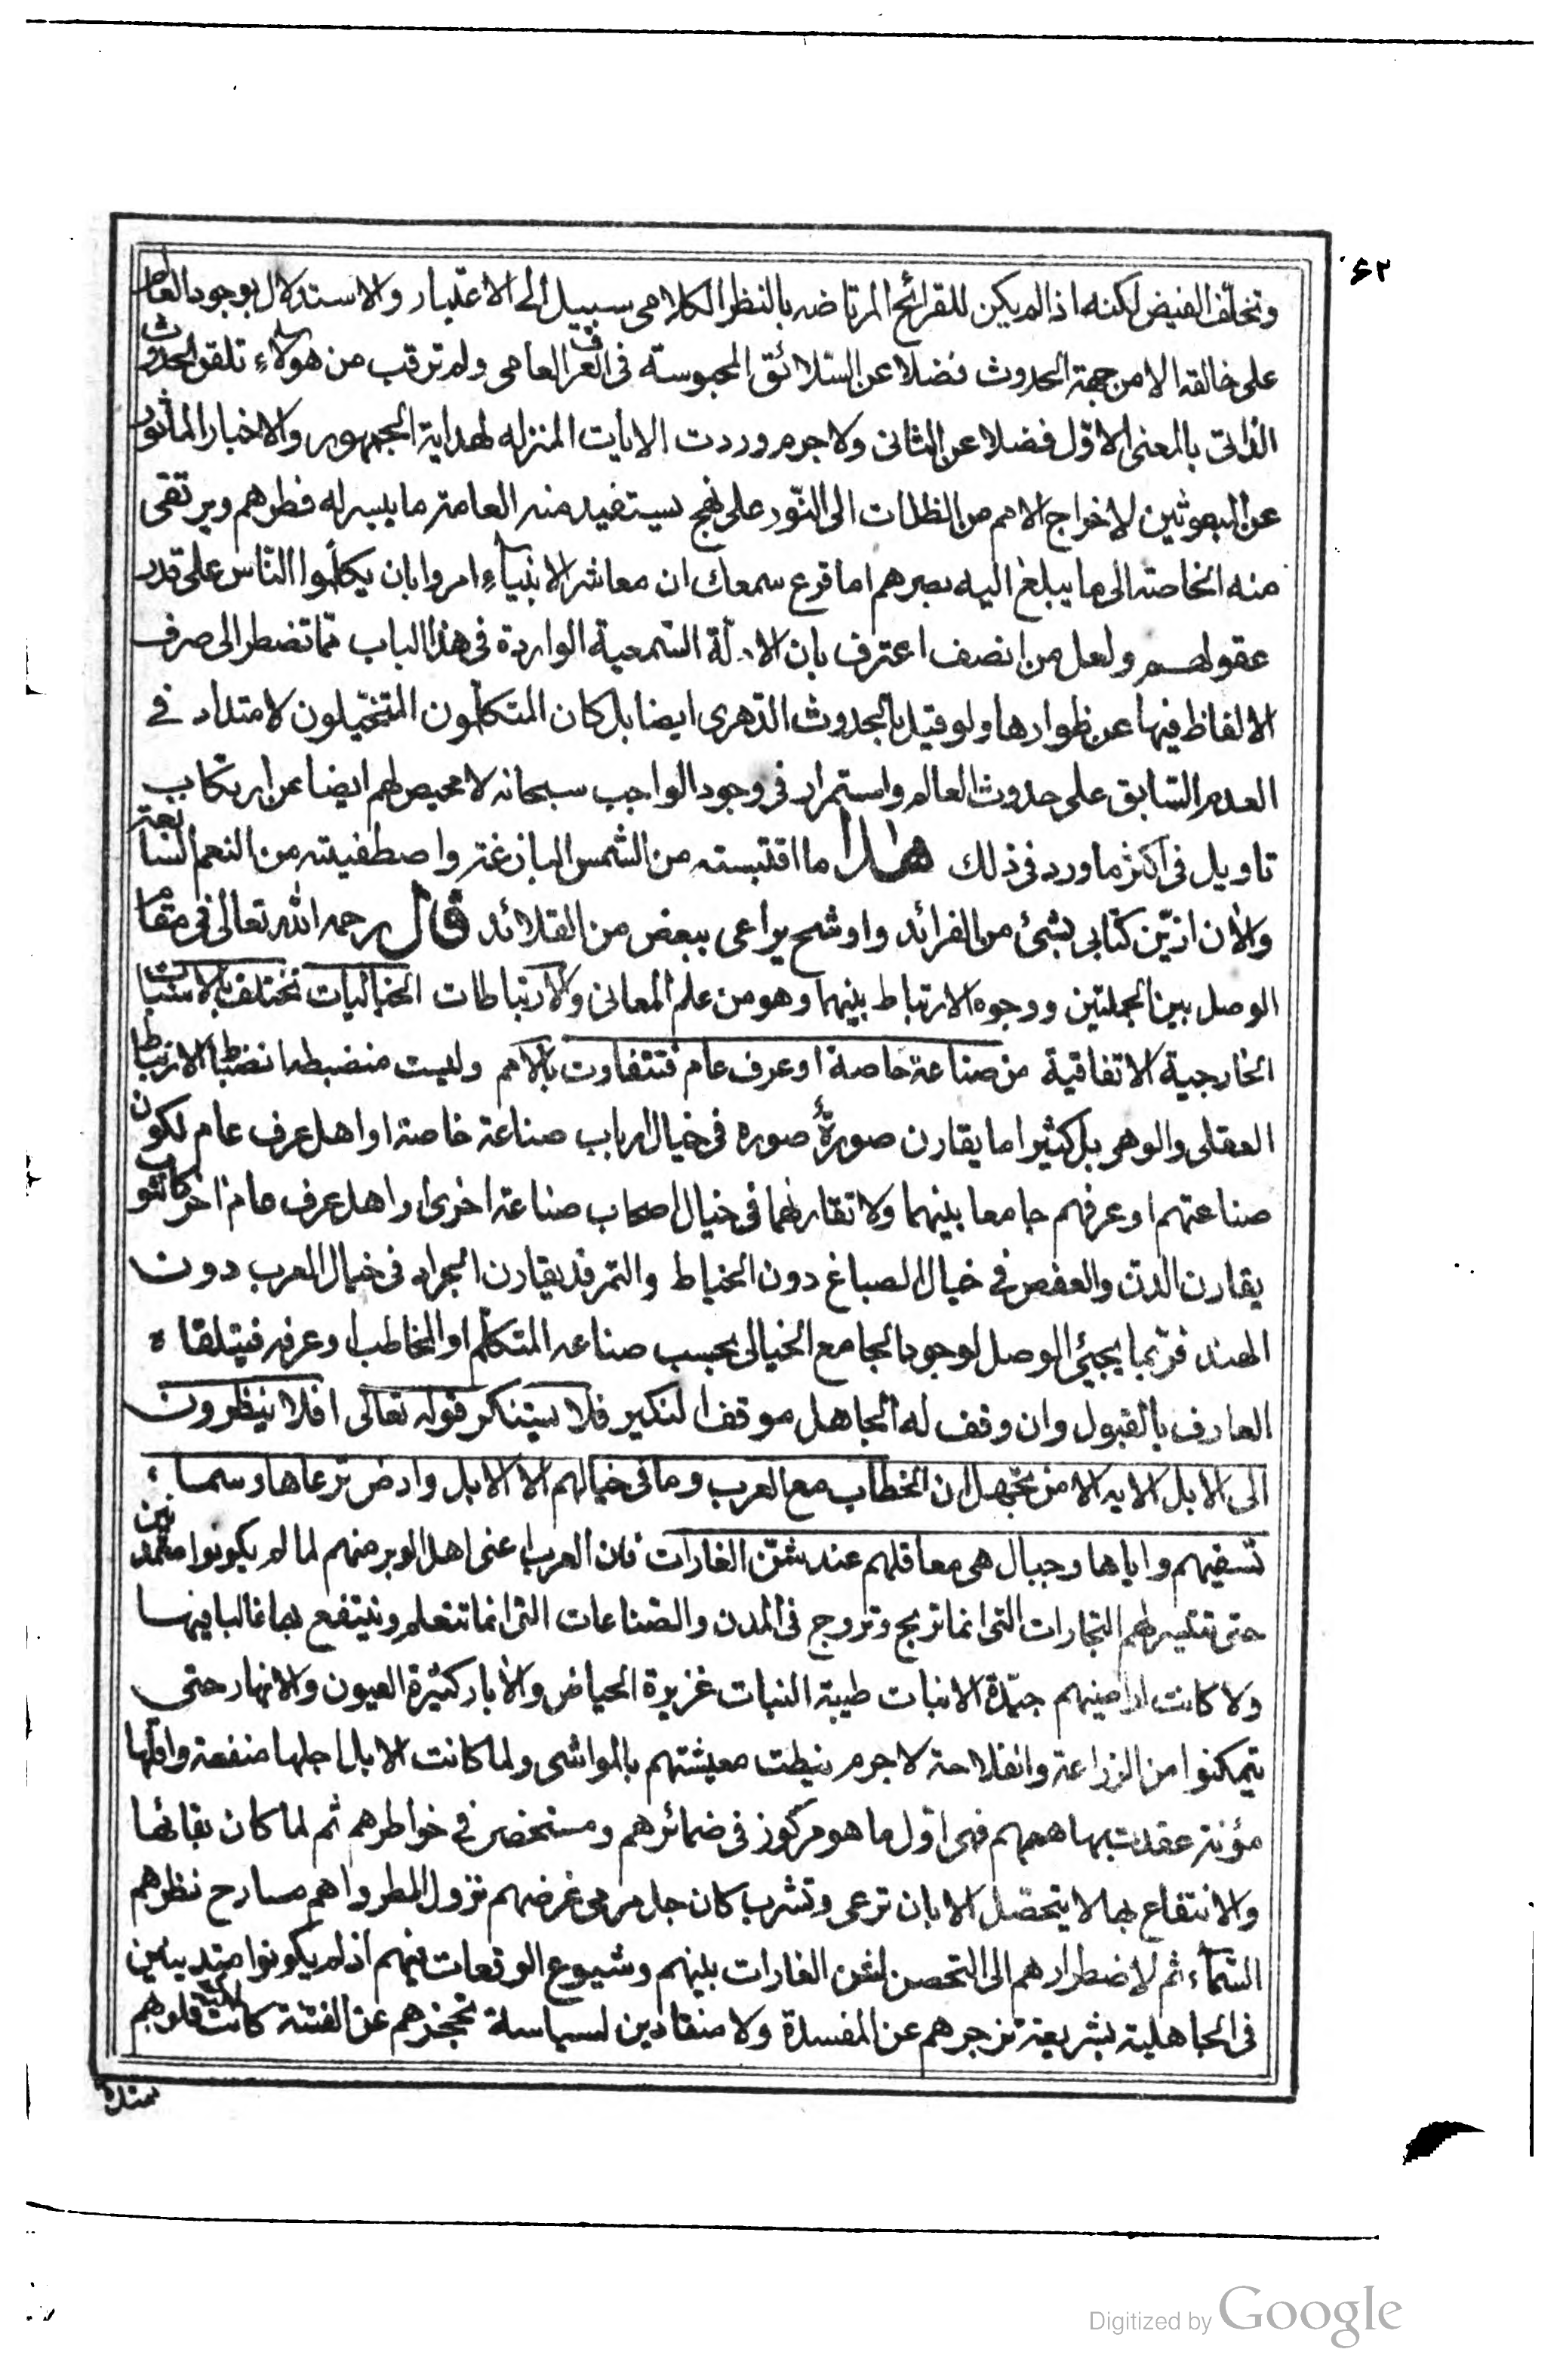 ٦٢
وتخلّف الفيض لكنه اذا لم يكن للقرائح المرتاضه بالنظر الكلامى سبيل الى الاعتبار والاستدلال بوجود العالم
على خالقه الا من جهة الحدوث فضلا عن السلائق المحبوسته فى العرف العامى ولم ترقب من هؤلاء تلقى الحدوث
الذاتى بالمعنى الاوّل فضلا عن الثانى ولا جرم وردت الايات المنزله لهداية الجمهور والاخبار الماثور
عن المبعوثين لاخراج الامم من الظلمات الى النّور على نهج يستفيد منه العامة ما يسر له فطرهم ويرتقى
منه الخاصة الى ما يبلغ اليه بصرهم اما قرع سمعك ان معاشر الانبياء امروا بان يكلّموا الناس على قدر
عقولهم ولعل من انصف اعترف بان الادلة السمعية الواردة فى هذا الباب مما تضطر الى صرف
الالفاظ فيها عن ظواهرها ولو قيل بالحدوث الدهرى ايضا بل كان المتكلّمون المتخيّلون لامتداد فى
العدم السابق على حدوث العالم واستمرار فى وجود الواجب سبحانه لا محيص لهم ايضا عن ارتكاب
تاويل فى اكثر ما ورد فى ذلك هذا ما اقتبسته من الشمس البازغة واصطفيته من النعم السابغة
والأن ازيّن كتابى بشئ من الفرائد واوشح يراعى ببعض من القلائد قال رحمه الله تعالى فى مقام
الوصل بين الجملتين ووجوه الارتباط بينهما وهو من علم المعانى والارتباطات الخياليات تختلف بالاسباب
الخارجية الاتفاقية من صناعة خاصة او عرف عام فتتفاوت بالامم وليست منضبطه انضباط الارتباط
العقلى والوهمى بل كثيرا ما يقارن صورةٌ صوره فى خيال ارباب صناعة خاصة او اهل عرف عام لكون
صناعتهم او عرفهم جامعا بينهما ولا تقارنهما فى خيال اصحاب صناعة اخرى او اهل عرف عام اخر كالثوب
يقارن الدن والعفص فى خيال الصباغ دون الخياط والتمر قد يقارن الجراد فى خيال العرب دون
الهند فربّما يجيئ الوصل لوجود الجامع الخيالى بحسب صناعه المتكلّم او المخاطب او عرفه فيتلقاه
العارف بالقبول وان وقف له الجاهل موقف النكير فلا يستنكر قوله تعالى افلا ينظرون
الى الابل الايه الا من يجهل ان الخطاب مع العرب وما فى خيالهم الا الابل وارض ترعاها وسماء
تسقيهم واياها وجبال هى معاقلهم عند شنّ الغارات فان العرب اعنى اهل الوبر منهم لما لم يكونوا متمدنين
حتى تتيسر لهم التجارات التى انما تربح وتروج فى المدن والصناعات التى انما تتعلم وينتفع بها غالبا فيها
ولا كانت اراضيهم جيّدة الانبات طيبة النبات غزيرة الحياض والأبار كثيرة العيون والانهار حتى
يتمكنوا من الزراعة والفلاحة لا جرم نيطت معيشتهم بالمواشى ولما كانت الابل اجلها منفعة واقلّها
مؤنة عقدت بها هممهم فهى اوّل ما هو مركوز فى ضمائرهم ومستحضر فى خواطرهم ثم لما كان بقائها
والانتفاع بها لا يتحصّل الا بان ترعى وتشرب كان جل مرمى غرضهم نزول المطر واهم مسارح نظرهم
السماء ثم لاضطرارهم الى التحصن لشن الغارات بينهم وشيوع الوقعات فيهم اذ لم يكونوا متديينين
فى الجاهلية بشريعة تزجرهم عن المفسدة ولا منقادين لسياسة تحجزهم عن الفتنة كانت قلوبهم
Digitized by Google